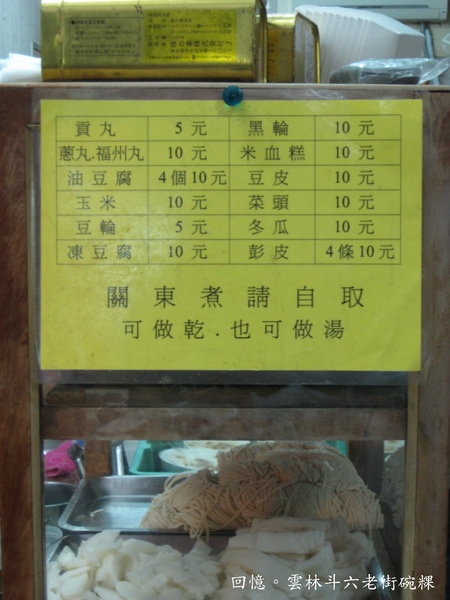 貢丸 5元 黑輪 10元
蔥丸.福州丸 10元 米血糕 10元
油豆腐 4個10元 豆皮 10元
玉米 10元 菜頭 10元
豆輪 5元 冬瓜 10元
凍豆腐 10元 彭皮 4條10元
關東煮請自取
可做乾.也可做湯
回憶。雲林斗六老街碗粿